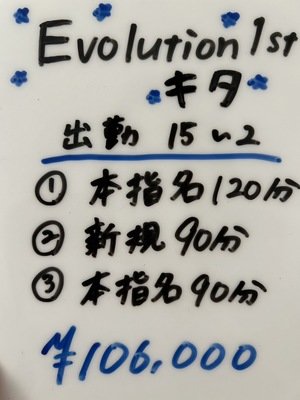 Evolution 1st
キタ
出勤 15〜2
① 本指名120分
② 新規 90分
③ 本指名90分
¥106,000